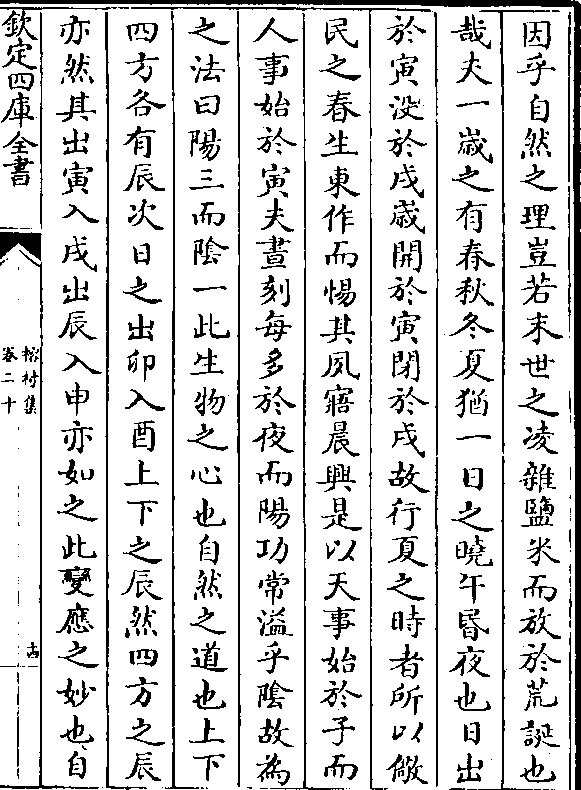 因乎自然之理豈若末世之凌雜鹽米而放於荒誕也
哉夫一歲之有春秋冬夏猶一日之曉午昏夜也日出
於寅没於戌歲開於寅閉於戌故行夏之時者所以儆
民之春生東作而惕其夙寤晨興是以天事始於子而
人事始於寅夫晝刻每多於夜而陽功常溢乎陰故為
之法曰陽三而陰一此生物之心也自然之道也上下
四方各有辰次日之出卯入酉上下之辰然四方之辰
亦然其出寅入戌出辰入申亦如之此變應之妙也自
欽定四庫全書
松村集
卷二十
古